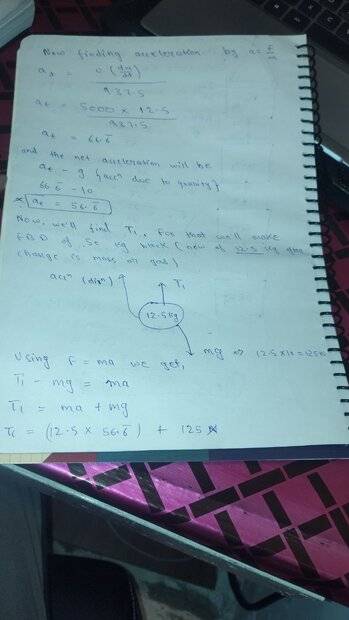 Now finding acceleration by a = F/m
at = v (dm/dt) / 937.5
at = 5000 × 12.5 / 937.5
at = 66.6̅
and the net acceleration will be
at - g {accⁿ due to gravity}
66.6̅ - 10
* at = 56.6̅
Now, we'll find T1, for that we'll make
FBD of 50 kg block (new of 12.5 kg after
change is mass of gas)
accⁿ (dirⁿ) T1
12.5 kg
mg ⇒ 12.5 × 10 = 125 N
Using F = ma we get,
T1 - mg = ma
T1 = ma + mg
T1 = (12.5 × 56.6̅) + 125